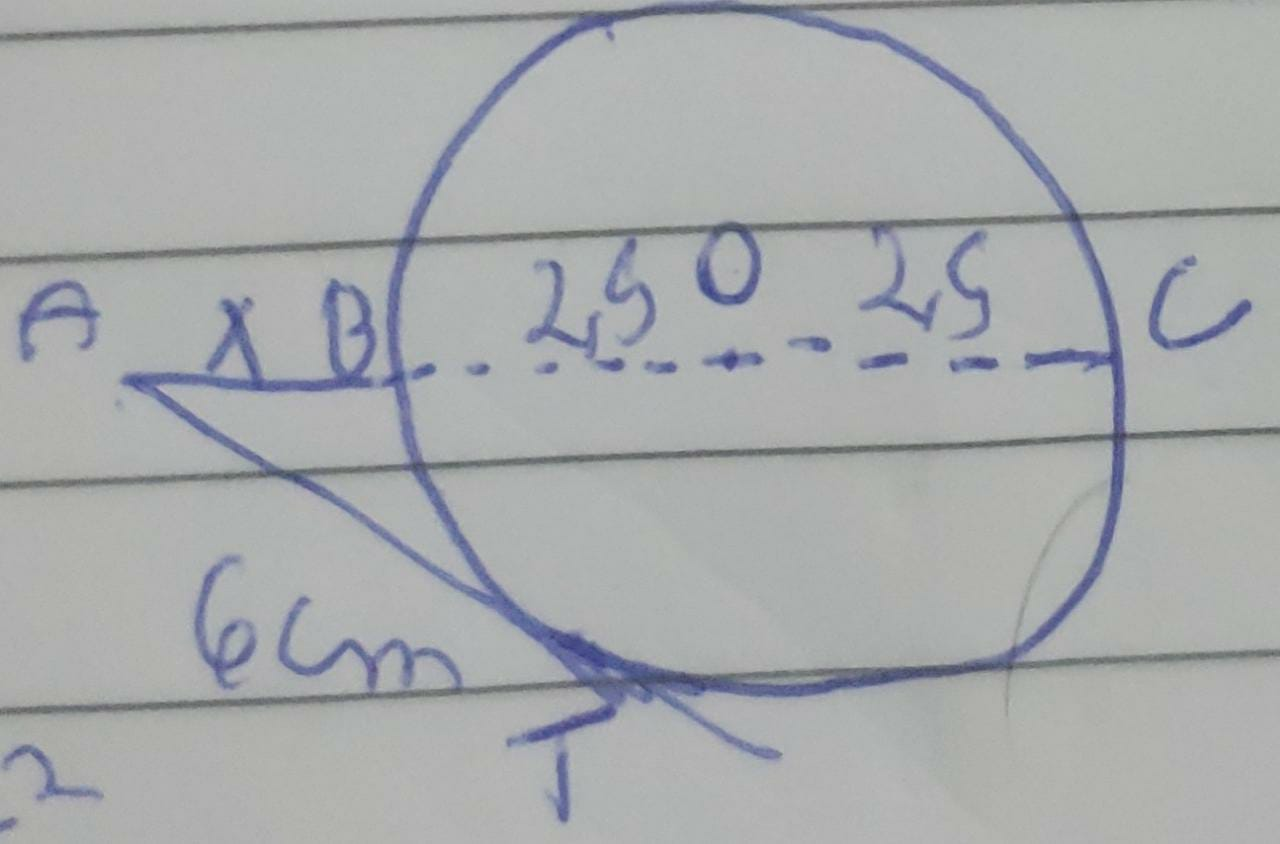 A X B 2,5 O 2,5 C
6cm
T
2